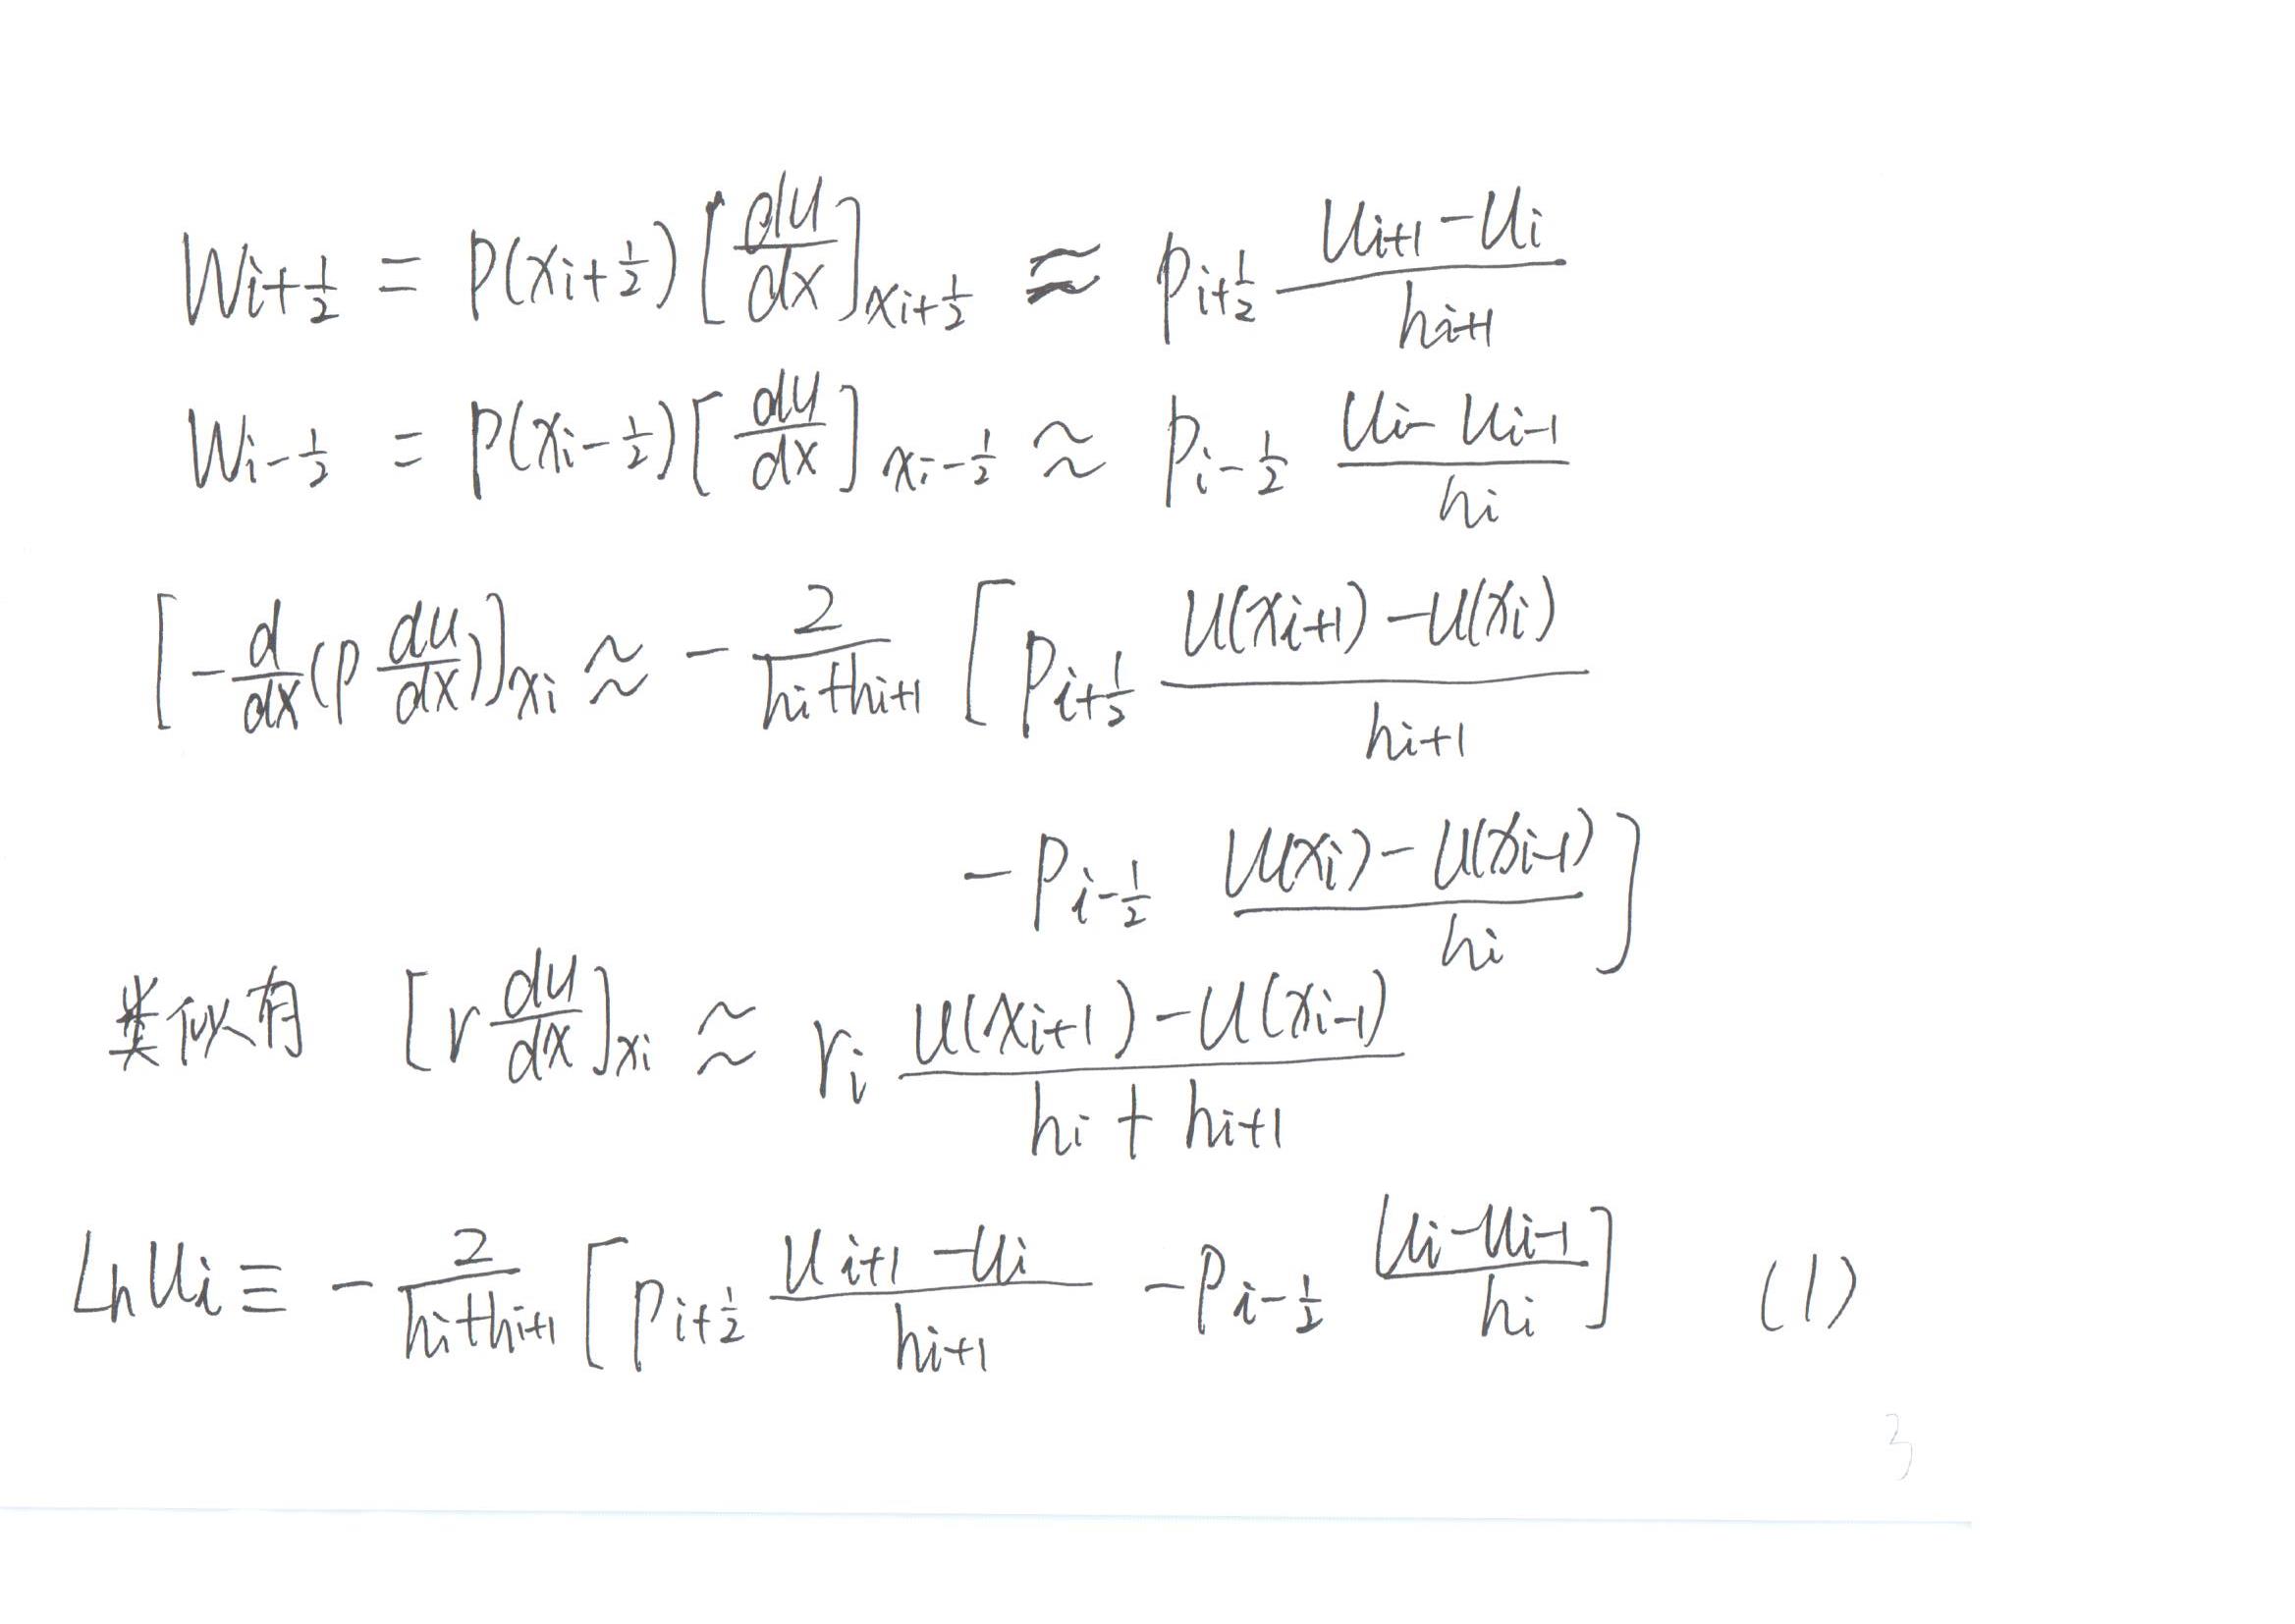 $W_{i+\frac{1}{2}} = P(x_{i+\frac{1}{2}}) \left[\frac{du}{dx}\right]_{x_{i+\frac{1}{2}}} \approx P_{i+\frac{1}{2}} \frac{u_{i+1} - u_i}{h_{i+1}}$
$W_{i-\frac{1}{2}} = P(x_{i-\frac{1}{2}}) \left[\frac{du}{dx}\right]_{x_{i-\frac{1}{2}}} \approx P_{i-\frac{1}{2}} \frac{u_i - u_{i-1}}{h_i}$
$\left[-\frac{d}{dx}(p\frac{du}{dx})\right]_{x_i} \approx -\frac{2}{h_i+h_{i+1}} \left[ P_{i+\frac{1}{2}} \frac{u(x_{i+1}) - u(x_i)}{h_{i+1}} \right.$
$\left. - P_{i-\frac{1}{2}} \frac{u(x_i) - u(x_{i-1})}{h_i} \right]$
类似有 $\left[r\frac{du}{dx}\right]_{x_i} \approx r_i \frac{u(x_{i+1}) - u(x_{i-1})}{h_i + h_{i+1}}$
$L_h u_i \equiv -\frac{2}{h_i+h_{i+1}} \left[ P_{i+\frac{1}{2}} \frac{u_{i+1} - u_i}{h_{i+1}} - P_{i-\frac{1}{2}} \frac{u_i - u_{i-1}}{h_i} \right]$ (1)
3